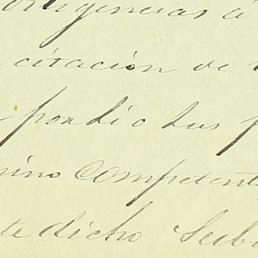 diligencias á
citación de
por dio tus
mino competente
te dicho Sub